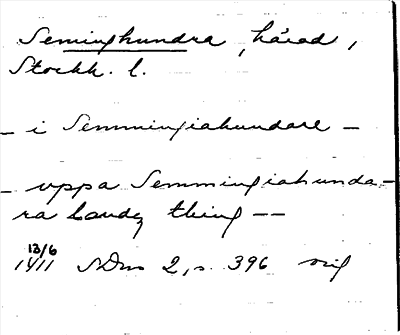 Seminghundra, härad,
Stockh. l.
– i Semmingiahundare –
– uppa Semmingiahunda-
ra landz thing – –
13/6
1411 SDns 2, s. 396 orig